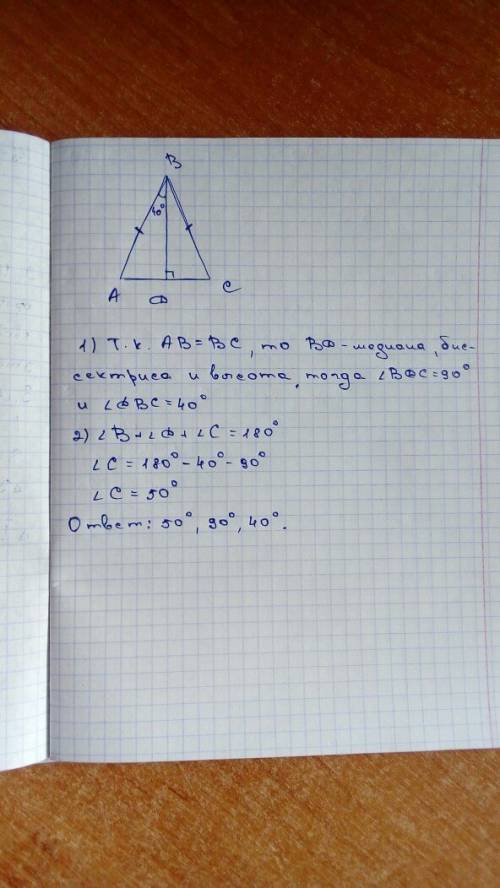 B
40°
A Ф C
1) Т.к. AB = BC, то BФ - медиана, бис-
сектриса и высота, тогда ∠BФC = 90°
и ∠ФBC = 40°
2) ∠B + ∠Ф + ∠C = 180°
∠C = 180° - 40° - 90°
∠C = 50°
Ответ: 50°, 90°, 40°.